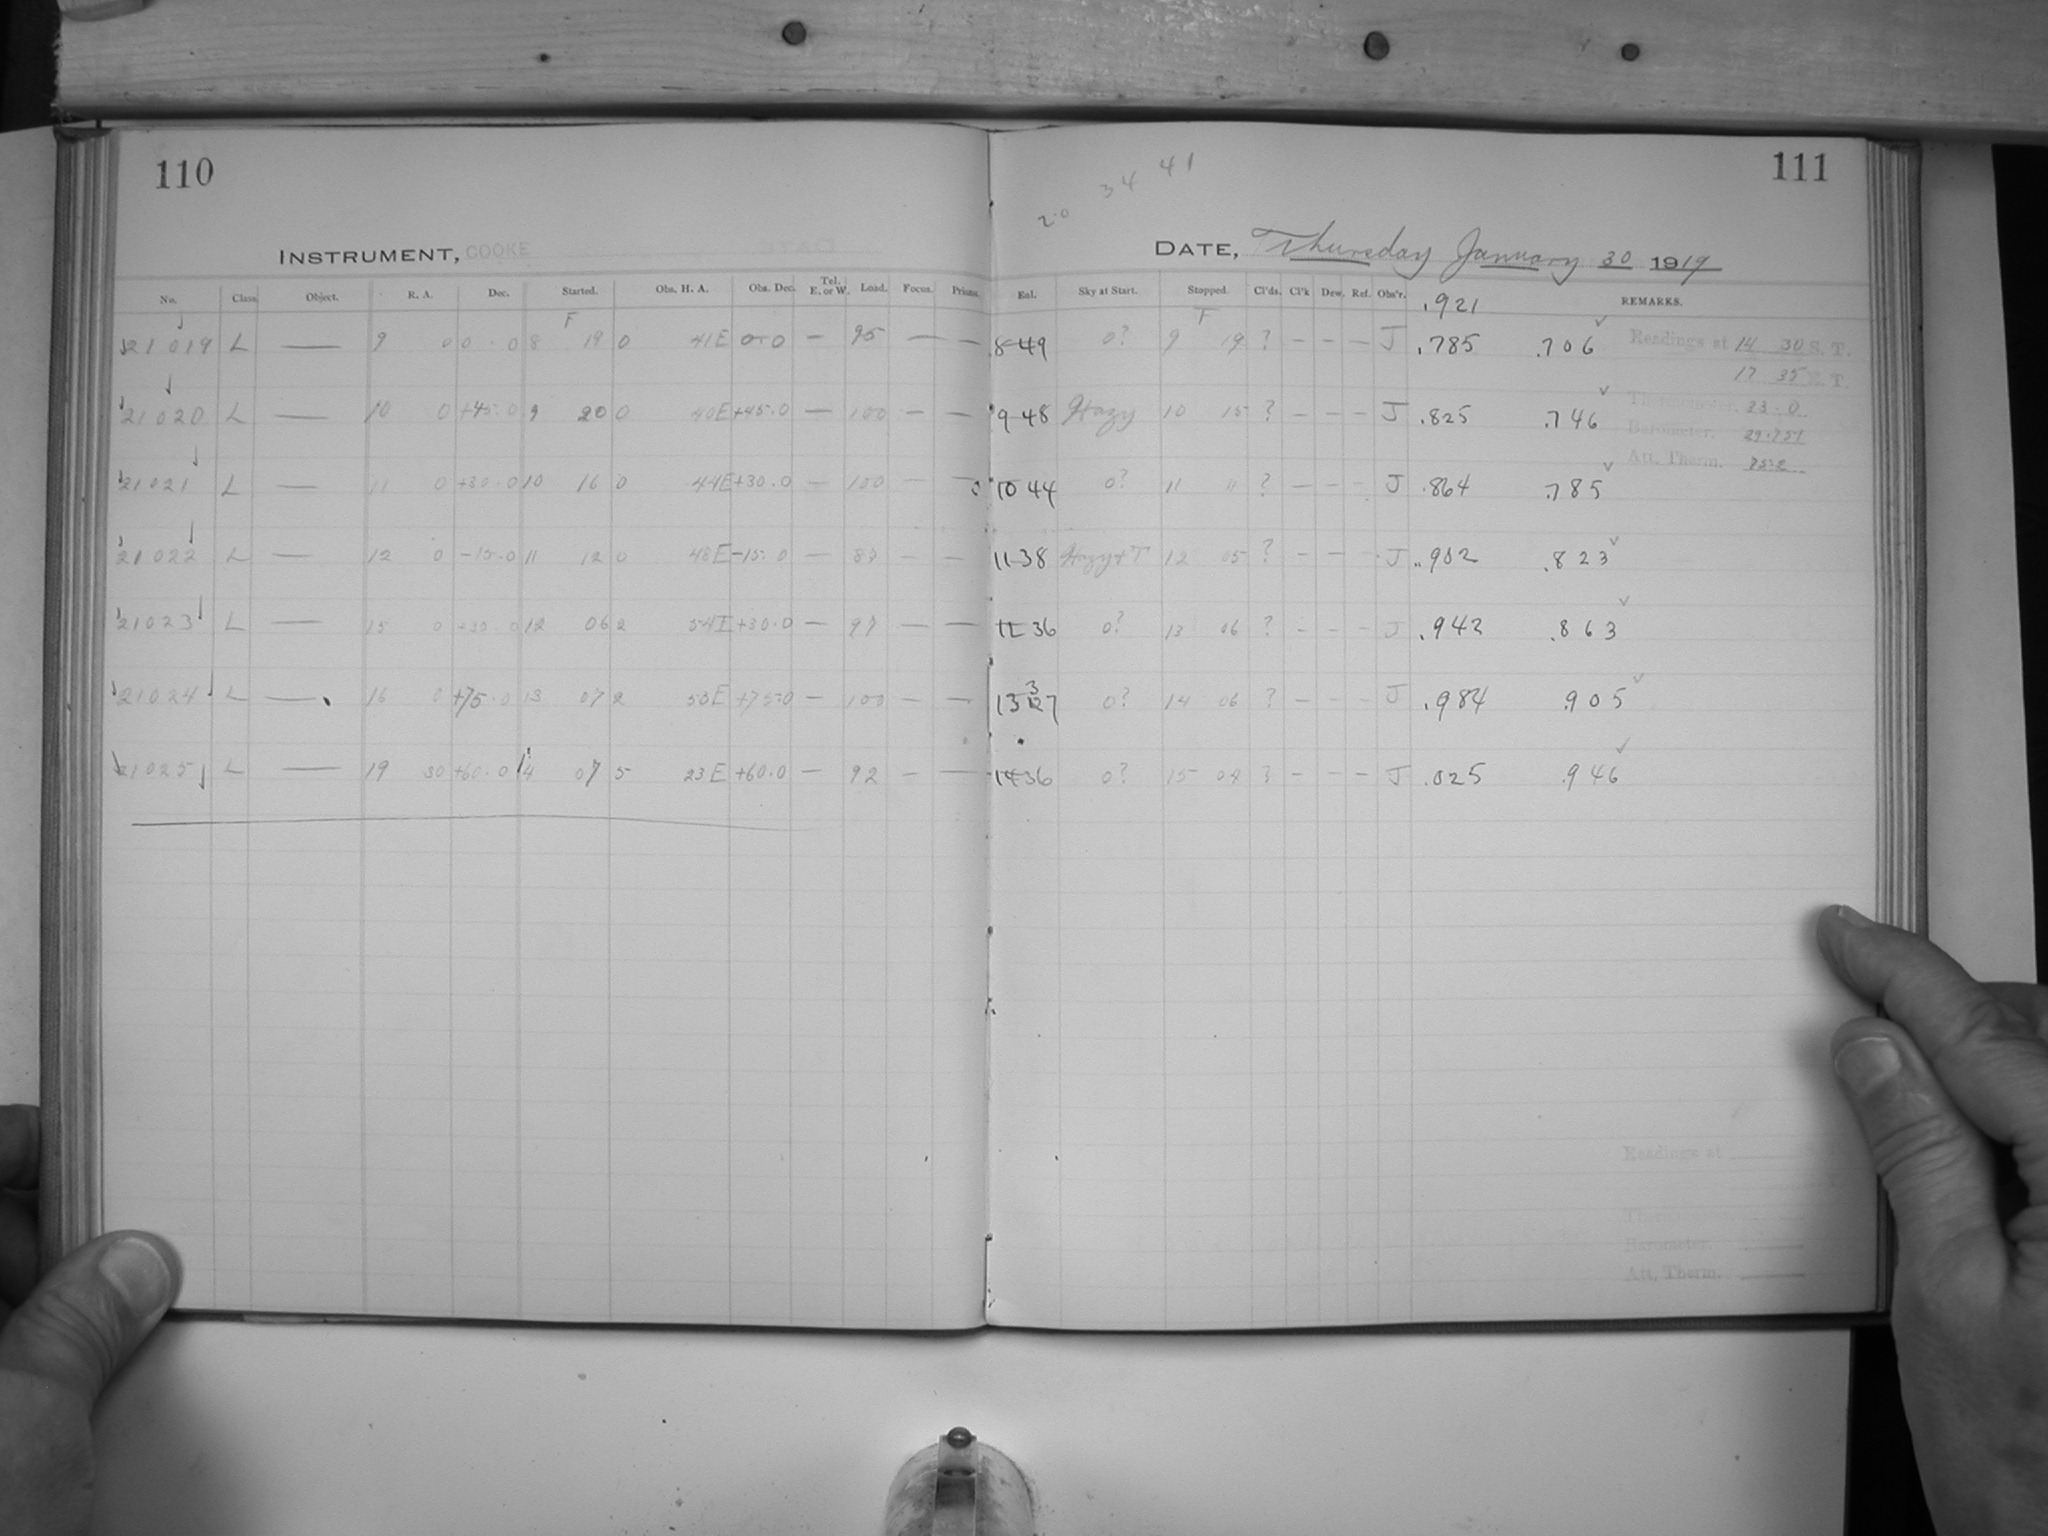 110
INSTRUMENT, COOKE
No. Class Object. R. A. Dec. Started. Obs. H. A. Obs. Dec. Tel. E. or W. Load. Focus. Prisms.
F
21019 L — 9 0 0.0 8 19 0 41E 0.0 — 95 — —
21020 L — 10 0 +45.0 9 20 0 40E +45.0 — 100 — —
21021 L — 11 0 +30.0 10 16 0 44E +30.0 — 100 — —
21022 L — 12 0 -15.0 11 12 0 48E -15.0 — — —
21023 L — 15 0 +30.0 12 06 2 54E +30.0 — 97 — —
21024 L — 16 0 +75.0 13 07 2 53E +75.0 — 100 — —
21025 L — 19 30 +60.0 14 07 5 23E +60.0 — 92 — —
111
20 34 41
DATE, Thursday January 30 1919
Eql. Sky at Start. Stopped. Cl'ds. Cl'k Dew. Ref. Obs'r. .921 REMARKS.
F
8 49 0? 9 19 ? — — — J .785 .706 Readings at 14 30 S. T.
17 35 E. T.
9 48 Hazy 10 15 ? — — — J .825 .746 Thermometer. 23.0
Barometer. 29.751
Att. Therm.
10 44 0? 11 11 ? — — — J .864 .785
11 38 Hazy+T 12 05 ? — — — J .902 .823
12 36 0? 13 06 ? — — — J .942 .863
13 37 0? 14 06 ? — — — J .984 .905
14 36 0? 15 04 ? — — — J .025 .946
Readings at
Barometer.
Att. Therm.